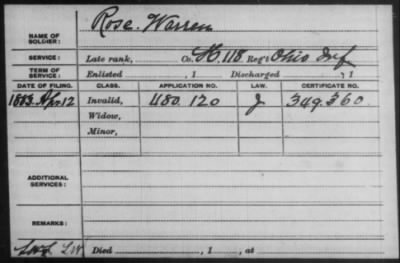 Rose. Warren
NAME OF SOLDIER:
SERVICE: Late rank, Co. H. 118 Reg't Ohio Inf
TERM OF SERVICE: Enlisted , 1 Discharged , 1
DATE OF FILING. CLASS. APPLICATION NO. LAW. CERTIFICATE NO.
1883 Apr 12 Invalid, 480.120 J 349.360
Widow,
Minor,
ADDITIONAL SERVICES:
REMARKS:
Died , 1 , at